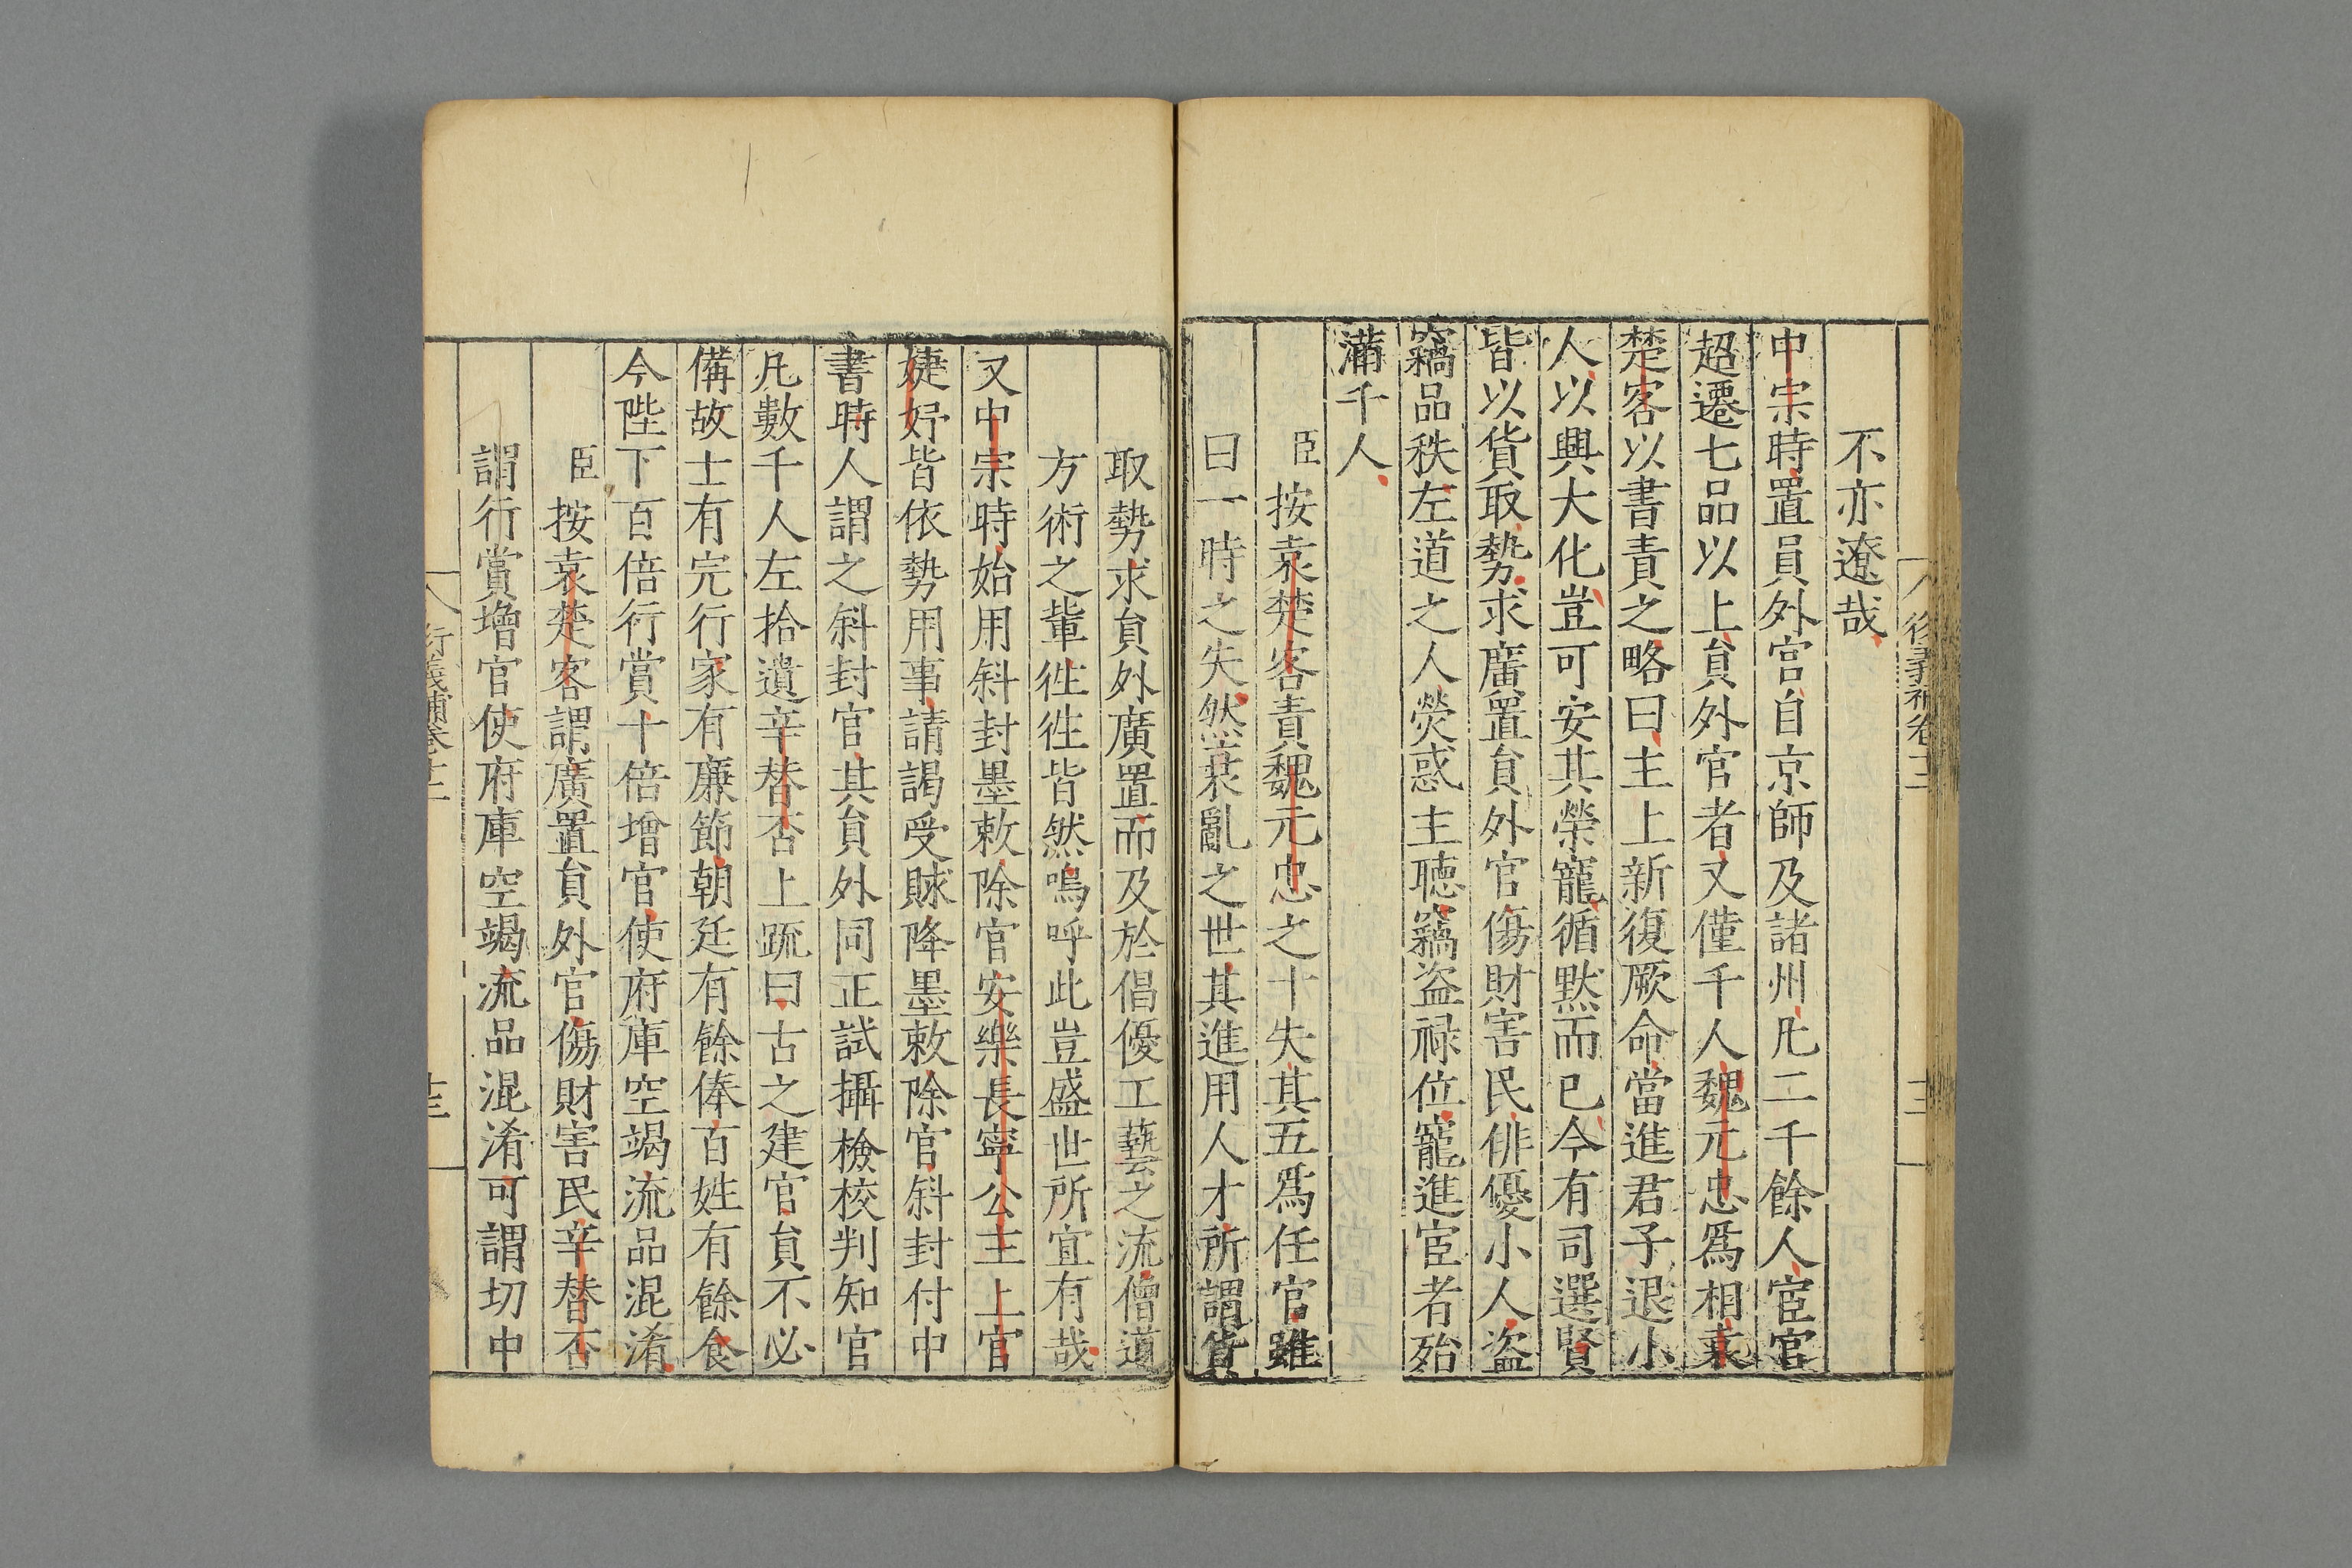 不亦遼哉
中宗時置員外官自京師及諸州凡二千餘人宦官
超遷七品以上員外官者又僅千人魏元忠爲相袁
楚客以書責之略曰主上新復厥命當進君子退小
人以興大化豈可安其榮寵循默而已今有司選賢
皆以貨取勢求廣置員外官傷財害民俳優小人盗
竊品秩左道之人熒惑主聴竊盗禄位寵進宦者殆
滿千人
臣按袁楚客責魏元忠之十失其五爲任官雖
曰一時之失然衰亂之世其進用人才所謂貨
取勢求員外廣置而及於倡優工藝之流僧道
方術之輩徃徃皆然嗚呼此豈盛世所宜有哉
又中宗時始用斜封墨敕除官安樂長寧公主上官
婕妤皆依勢用事請謁受賕降墨敕除官斜封付中
書時人謂之斜封官其員外同正試攝檢校判知官
凡數千人左拾遺辛替否上疏曰古之建官員不必
備故士有完行家有廉節朝廷有餘俸百姓有餘食
今陛下百倍行賞十倍增官使府庫空竭流品混淆
臣按袁楚客謂廣置員外官傷財害民辛替否
謂行賞增官使府庫空竭流品混淆可謂切中